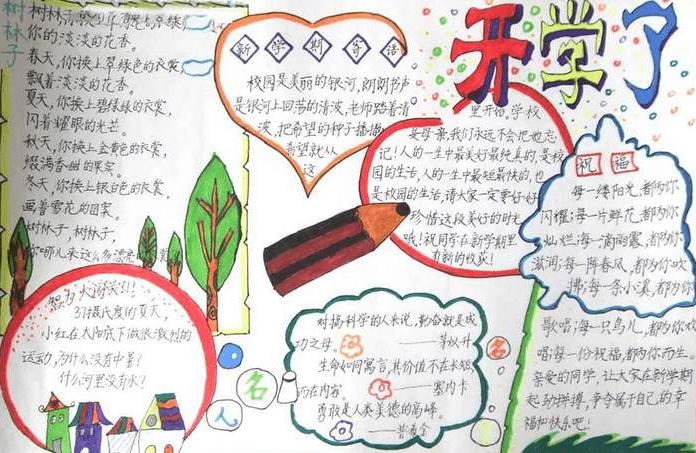 开学了
树林子
你的淡淡的花香。
春天,你换上翠绿色的衣裳,
飘着淡淡的花香。
夏天,你换上碧绿绿的衣裳,
闪着耀眼的光芒。
秋天,你换上金黄色的衣裳,
缀满香甜的果实。
冬天,你换上银白色的衣裳,
画着雪花的图案。
树林子,树林子
你哪儿来这么多漂亮的
新学期寄语
校园是美丽的银河,朗朗书声
是银河上回荡的清波,老师踏着清
波,把希望的种子播撒
希望就从
这
里开始,学校
是母亲,我们永远不会把他忘
记!人的一生中最美好最纯真的,是校
园的生活,人的一生中最短最快的,也
是校园的生活,请大家一定要好好
珍惜这段美好的时光
哦!祝同学在新学期里
有新的收获!
祝福
每一缕阳光,都为你
闪耀;每一片鲜花,都为你
灿烂;每一滴雨露,都为你
滋润;每一阵春风,都为你吹
拂;每一条小溪,都为你
歌唱;每一只鸟儿,都为你欢
唱;每一份祝福,都为你而生。
亲爱的同学,让大家在新学期
起劲拼搏,争夺属于自己的幸
福和快乐吧!
智力
37摄氏度的夏天,
小红在太阳底下做很激烈的
运动,为什么没有中暑?
什么河里没有水?
名人名
对搞科学的人来说,勤奋就是成
功之母。
——茅以升
生命如同寓言,其价值不在长短
而在内容。
——塞内卡
勇敢是人类美德的高峰。
——普希金